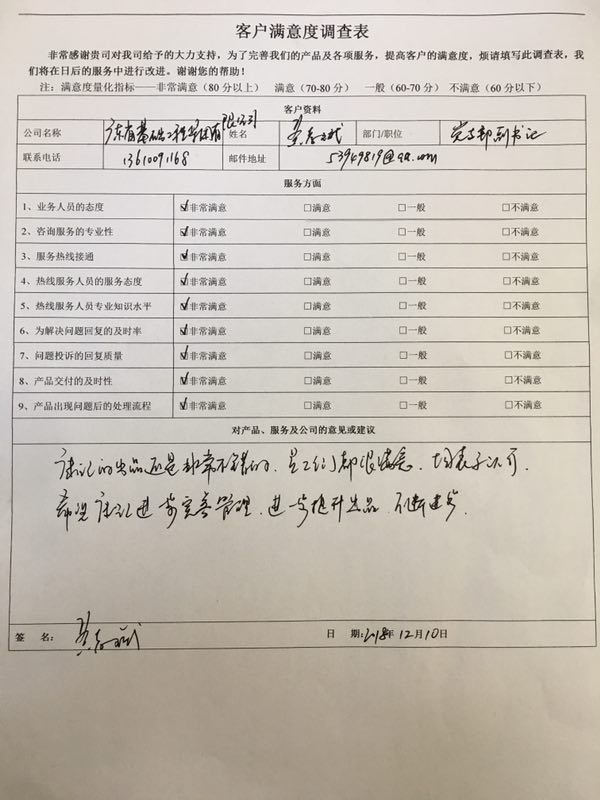 客户满意度调查表
非常感谢贵司对我司给予的大力支持，为了完善我们的产品及各项服务，提高客户的满意度，烦请填写此调查表，我
们将在日后的服务中进行改进。谢谢您的帮助！
注：满意度量化指标——非常满意（80分以上） 满意（70-80分） 一般（60-70分） 不满意（60分以下）
客户资料
公司名称 广东省基础工程集团有限公司 姓名 黄 斌 部门/职位 党支部副书记
联系电话 13610091168 邮件地址 53949819@qq.com
服务方面
1、业务人员的态度 ☑非常满意 □满意 □一般 □不满意
2、咨询服务的专业性 ☑非常满意 □满意 □一般 □不满意
3、服务热线接通 ☑非常满意 □满意 □一般 □不满意
4、热线服务人员的服务态度 ☑非常满意 □满意 □一般 □不满意
5、热线服务人员专业知识水平 ☑非常满意 □满意 □一般 □不满意
6、为解决问题回复的及时率 ☑非常满意 □满意 □一般 □不满意
7、问题投诉的回复质量 ☑非常满意 □满意 □一般 □不满意
8、产品交付的及时性 ☑非常满意 □满意 □一般 □不满意
9、产品出现问题后的处理流程 ☑非常满意 □满意 □一般 □不满意
对产品、服务及公司的意见或建议
的出品还是非常不错的，员工们都很满意，均表示认可，
希望 进一步完善管理，进一步提升出品，不断进步。
签 名： 黄 斌 日 期：2018年12月10日